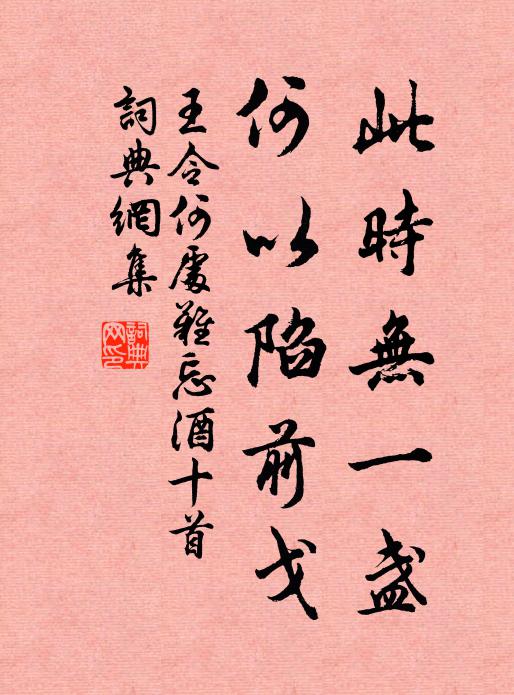 此時無一盞
何以陷前戈
王令何處難忘酒十首
詞典網集
詞典網印